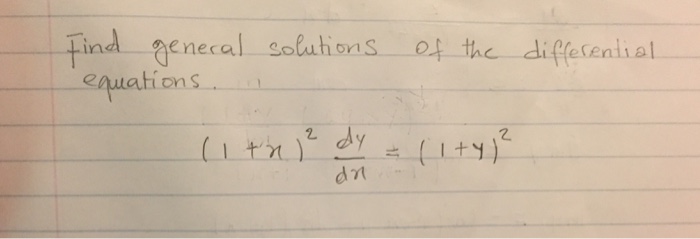 Find general solutions of the differential
equations.
(1+x)² dy/dx = (1+y)²